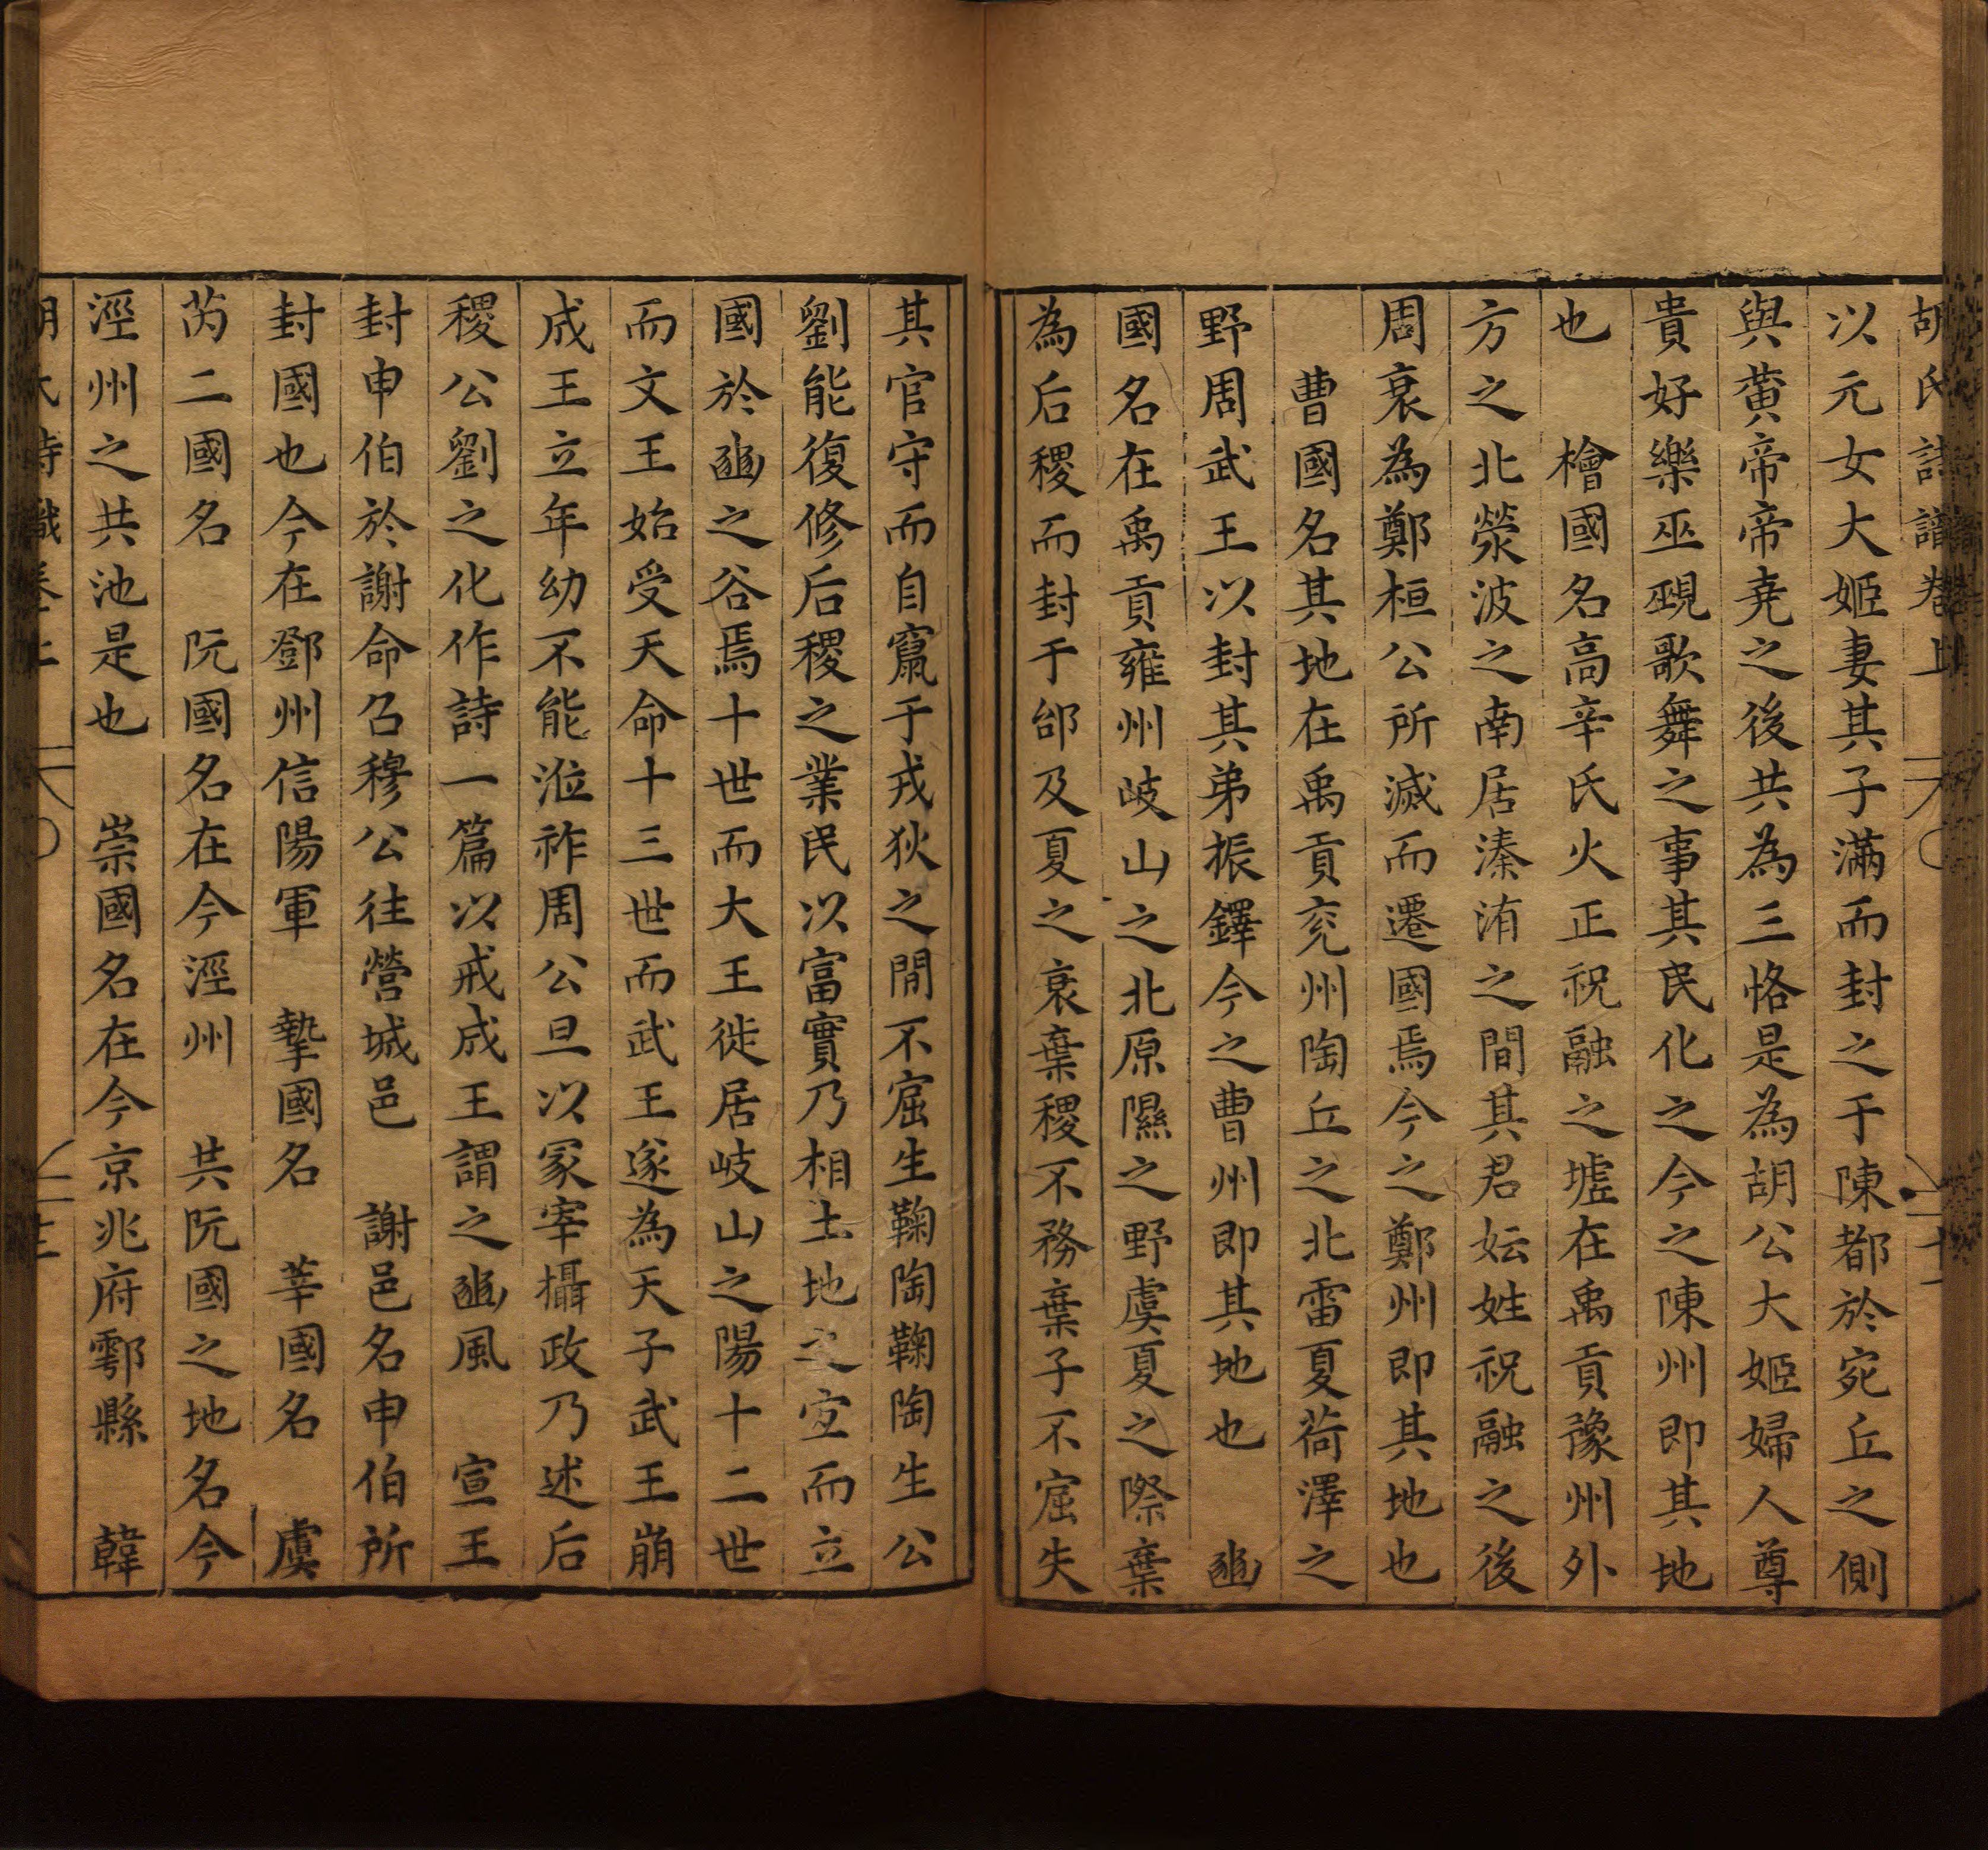 胡氏詩識卷上
以元女大姬妻其子滿而封之于陳都於宛丘之側
與黄帝帝堯之後共為三恪是為胡公大姬婦人尊
貴好樂巫覡歌舞之事其民化之今之陳州即其地
也　檜國名高辛氏火正祝融之墟在禹貢豫州外
方之北滎波之南居溱洧之間其君妘姓祝融之後
周衰為鄭桓公所滅而遷國焉今之鄭州即其地也
　曹國名其地在禹貢兖州陶丘之北雷夏荷澤之
野周武王以封其弟振鐸今之曹州即其地也　豳
國名在禹貢雍州岐山之北原隰之野虞夏之際棄
為后稷而封于邰及夏之衰棄稷不務棄子不窋失
其官守而自竄于戎狄之間不窋生鞠陶鞠陶生公
劉能復修后稷之業民以富實乃相土地之宜而立
國於豳之谷焉十世而大王徙居岐山之陽十二世
而文王始受天命十三世而武王遂為天子武王崩
成王立年幼不能涖祚周公旦以冢宰攝政乃述后
稷公劉之化作詩一篇以戒成王謂之豳風　宣王
封申伯於謝命召穆公往營城邑　謝邑名申伯所
封國也今在鄧州信陽軍　摯國名　莘國名　虞
芮二國名　阮國名在今涇州　共阮國之地名今
涇州之共池是也　崇國名在今京兆府鄠縣　韓